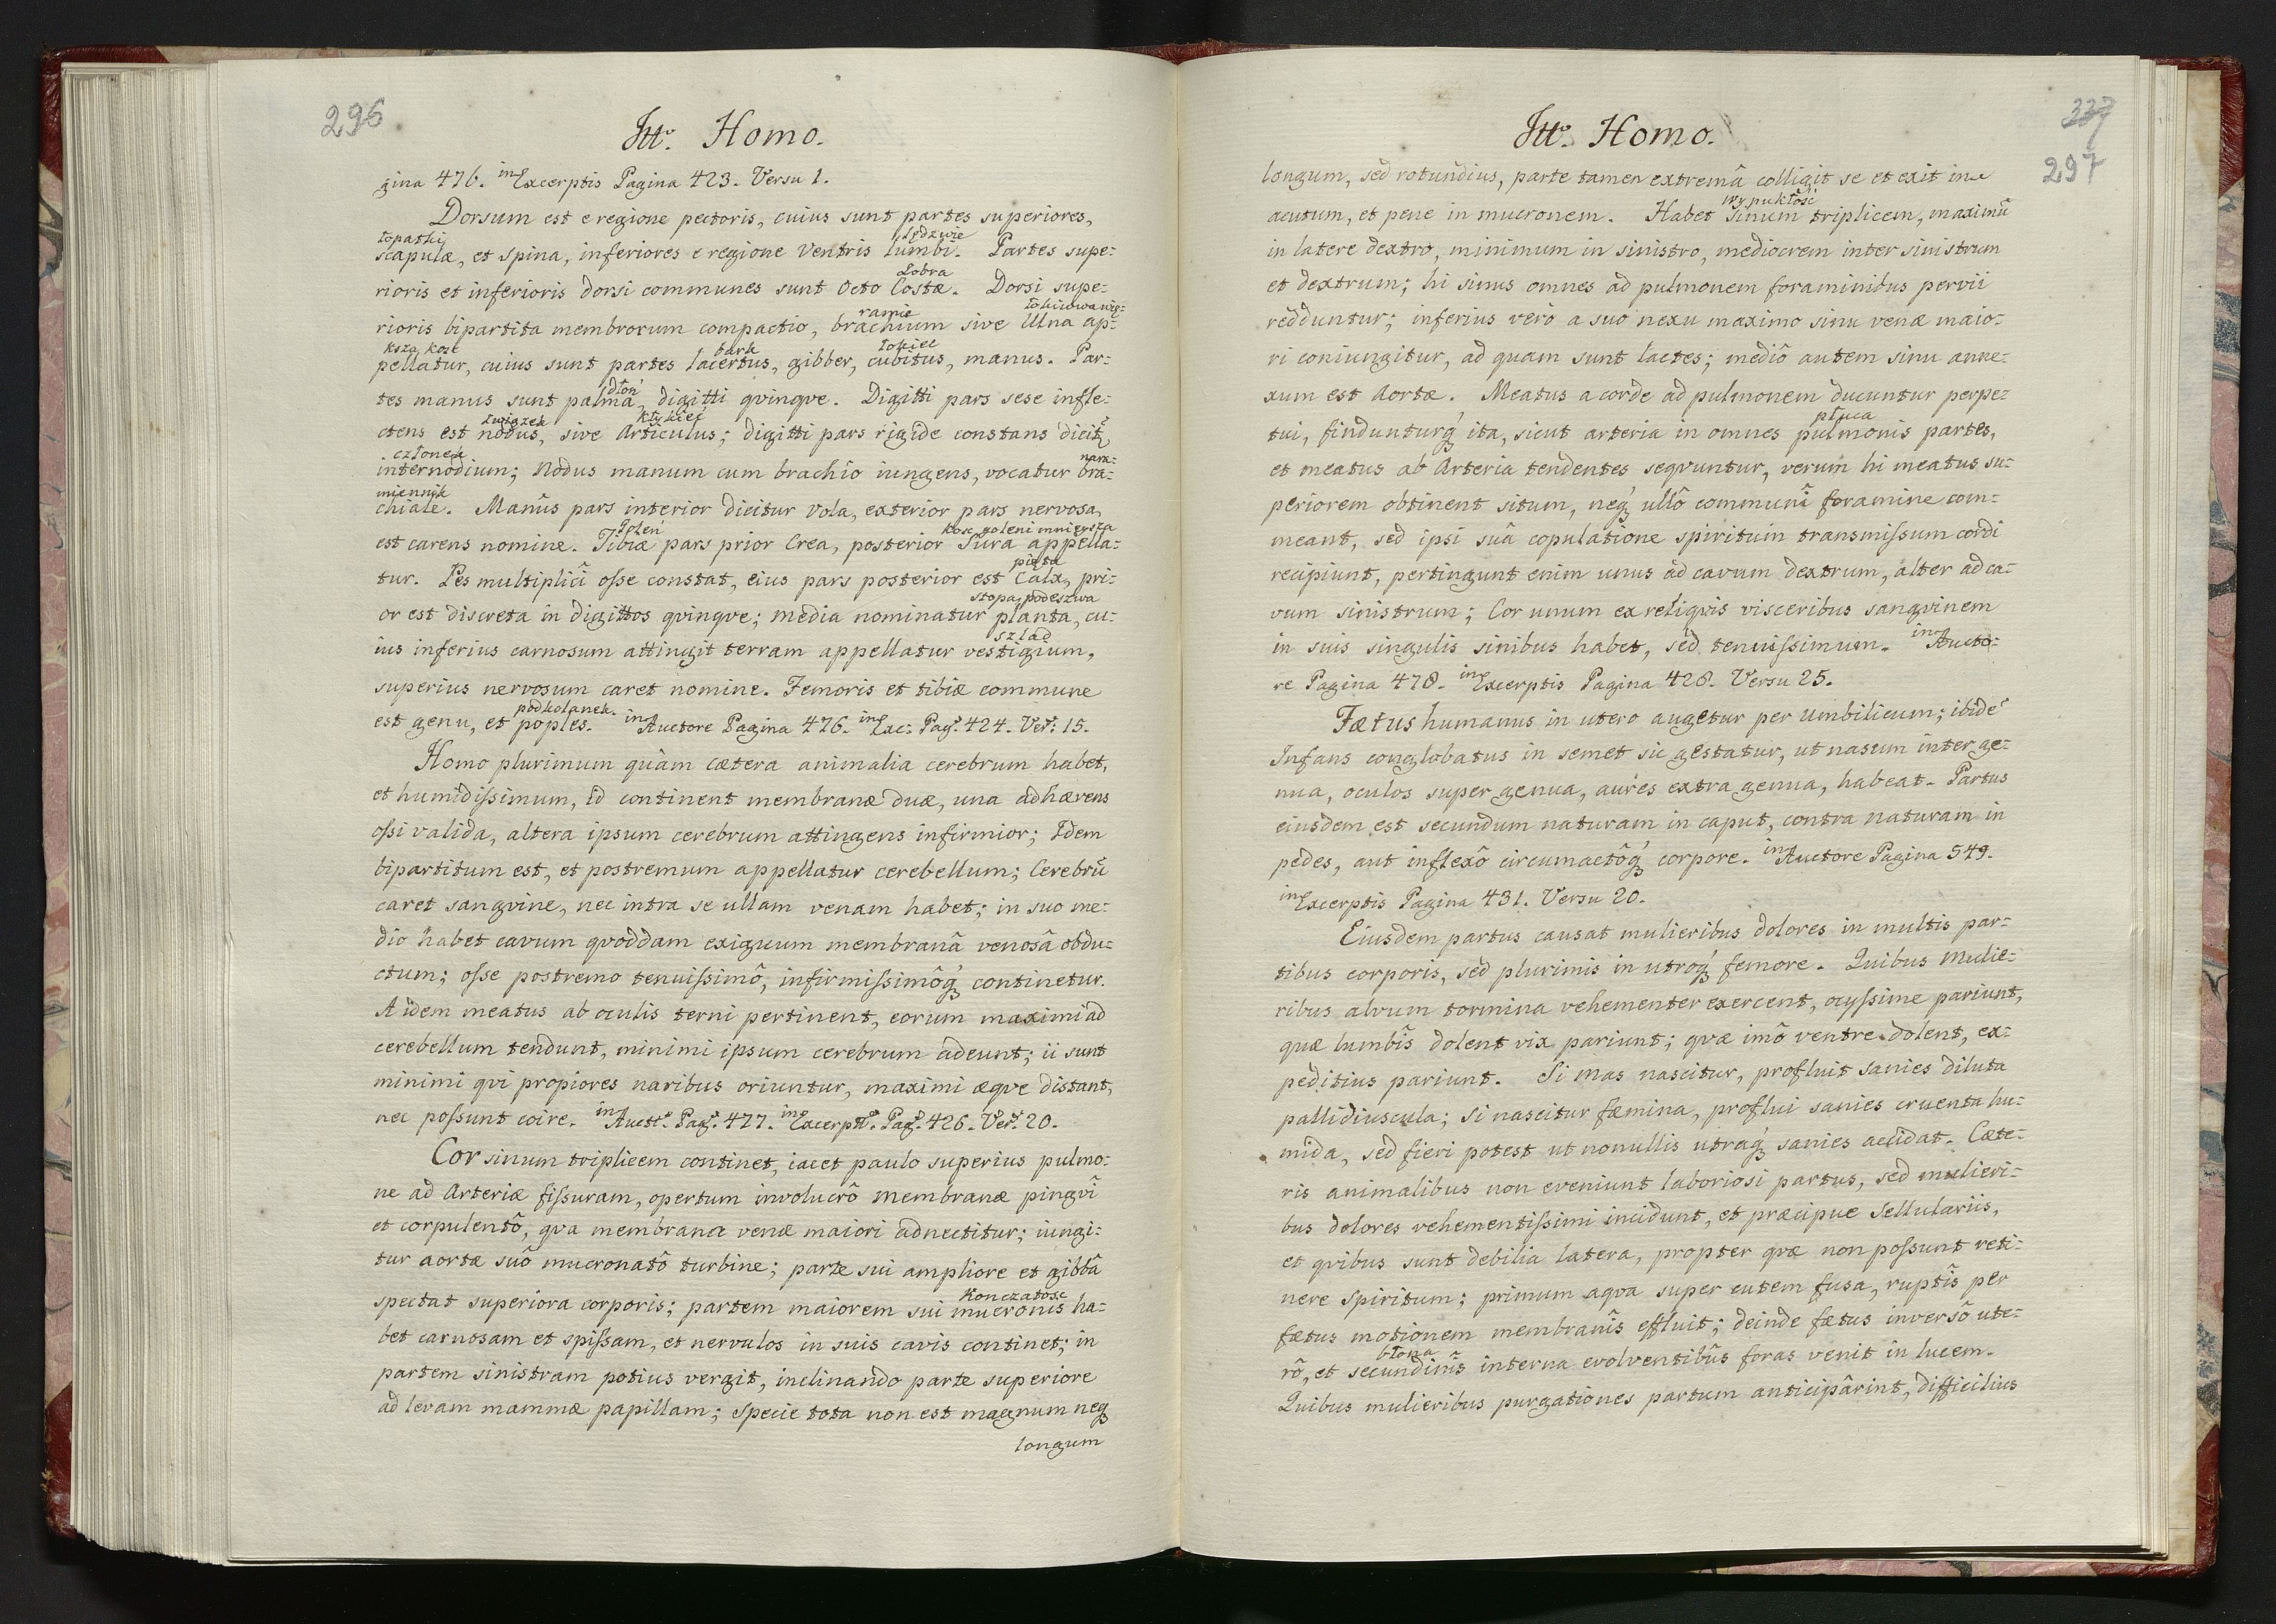 296
Itt. Homo.
gina 476. in Excerptis Pagina 423. Versu 1.
Dorsum est e regione pectoris, cuius sunt partes superiores,
łopatki lędzwie
scapulæ, et spina, inferiores e regione Ventris lumbi. Partes supe-
Żobra
rioris et inferioris dorsi communes sunt Octo Costæ. Dorsi supe-
ramie
rioris bipartita membrorum compactio, brachium sive Ulna ap-
bark łokieć
pellatur, cuius sunt partes lacertus, gibber, cubitus, manus. Par-
dłoń
tes manus sunt palma, digitti qvinqve. Digitti pars sese infle-
związek
ctens est nodus, sive Articulus; digitti pars rigide constans dicit,
członek
internodium; Nodus manum cum brachio iungens, vocatur bra-
chiale. Manûs pars interior dicitur Vola, exterior pars nervosa,
goleń kosc goleni mnieysza
est carens nomine. Tibiæ pars prior Crea, posterior Sura appella-
pięta
tur. Pes multiplici osse constat, eius pars posterior est Calx, pri-
stopa, podeszwa
or est discreta in digittos qvinqve; media nominatur planta, cu-
szlad
ius inferius carnosum attingit terram appellatur vestigium,
superius nervosum caret nomine. Femoris et tibiæ commune
podkolanek.
est genu, et poples. in Auctore Pagina 476. in Exc: Pag. 424. Ver: 15.
Homo plurimum quàm cætera animalia cerebrum habet,
et humidissimum, id continent membranæ duæ, una adhærens
ossi valida, altera ipsum cerebrum attingens infirmior; Idem
bipartitum est, et postremum appellatur cerebellum; Cerebrũ
caret sangvine, nec intra se ullam venam habet; in suo me-
dio habet cavum qvoddam exiguum membranâ venosâ obdu-
ctum; osse postremo tenuissimô, infirmissimôq3 continetur.
Aidem meatus ab oculis terni pertinent, eorum maximi ad
cerebellum tendunt, minimi ipsum cerebrum adeunt; ii sunt
minimi qvi propiores naribus oriuntur, maximi æqve distant,
nec possunt coire. in Auct. Pag. 477. in Excerpt. Pag. 426. Ver. 20.
Cor sinum triplicem continet, iacet paulo superius pulmo-
ne ad Arteriæ fissuram, opertum involucrô membranæ pingvî
et corpulentô, qva membrana venæ maiori adnectitur; iungi-
tur aortæ suô mucronatô turbine; parte sui ampliore et gibbâ
Konczatosc
spectat superiora corporis; partem maiorem sui mucronis ha-
bet carnosam et spissam, et nervulos in suis cavis continet; in
partem sinistram potius vergit, inclinando parte superiore
ad levam mammæ papillam; Specie tota non est magnum neq3
longum
337
297
Itt. Homo.
longum, sed rotundius, parte tamen extremâ colligit se et exit in
wypukłość
acutum, et pene in mucronem. Habet Sinum triplicem, maximũ
in latere dextro, minimum in sinistro, mediocrem inter sinistrum
et dextrum; hi sinus omnes ad pulmonem foraminibus pervii
redduntur; inferius verò a suo nexu maximo sinu venæ maio-
ri coniungitur, ad quam sunt lactes; mediô autem sinu anne-
xum est Aortæ. Meatus a corde ad pulmonem ducuntur perpe-
płuca
tui, findunturq3 ita, sicut arteria in omnes pulmonis partes,
et meatus ab Arteria tendentes seqvuntur, verum hi meatus su-
periorem obtinent situm, neq3 ullô communî foramine com-
meant, sed ipsi suâ copulatione spiritum transmissum cordi
recipiunt, pertingunt enim unus ad cavum dextrum, alter ad ca-
vum sinistrum; Cor unum ex reliqvis visceribus sangvinem
in suis singulis sinibus habet, sed tenuissimum. in Aucto-
re Pagina 478. in Excerptis Pagina 428. Versu 25.
Fætus humanus in utero augetur per umbilicum; ibidẽ
Infans conglobatus in semet sic gestatur, ut nasum inter ge-
nua, oculos super genua, aures extra genua, habeat. Partus
eiusdem est secundum naturam in caput, contra naturam in
pedes, aut inflexô circumactôq3 corpore. in Auctore Pagina 549.
in Excerptis Pagina 431. Versu 20.
Eiusdem partus causat mulieribus dolores in multis par-
tibus corporis, sed plurimis in utroq3 femore. Quibus Mulie-
ribus alvum tormina vehementer exercent, ocyssime pariunt,
quæ lumbîs dolent vix pariunt; qvæ imô ventre dolent, ex-
peditius pariunt. Si mas nascitur, profluit sanies diluta
pallidiuscula; si nascitur fæmina, proflui sanies cruenta hu-
mida, sed fieri potest ut nonullis utraq3 sanies accidat. Cæte-
ris animalibus non eveniunt laboriosi partus, sed mulieri-
bus dolores vehementissimi incidunt, et præcipue Sellulariis,
et qvibus sunt debilia latera, propter qvæ non possunt reti-
nere Spiritum; primum aqva super cutem fusa, ruptîs per
fætus motionem membranîs effluit; deinde fætus inversô ute-
błona
rô, et secundinîs interna evolventibûs foras venit in lucem.
Quibus mulieribus purgationes partum anticipârint, difficilius